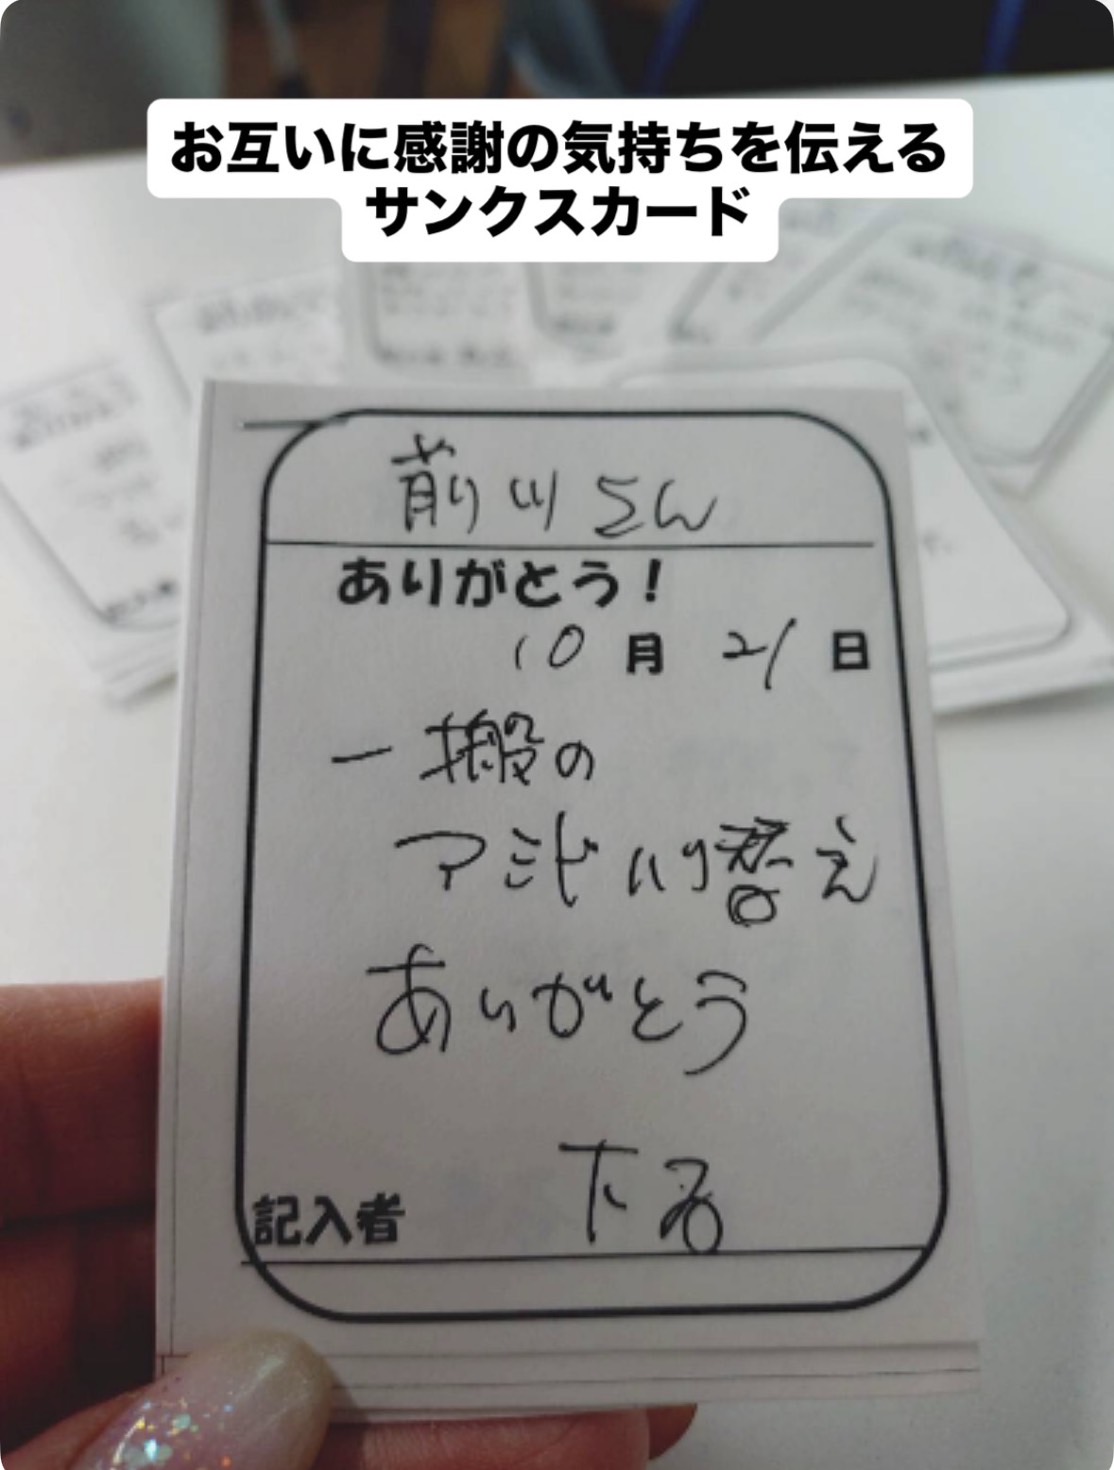 お互いに感謝の気持ちを伝える
サンクスカード
前川さん
ありがとう!
10月21日
一搬の
アミド川替え
ありがとう
記入者